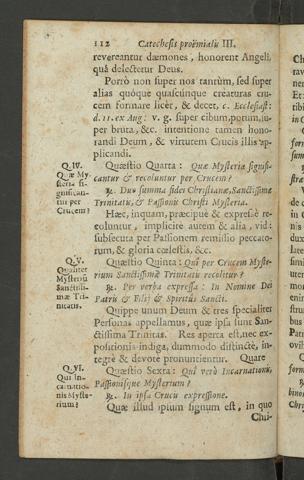 112 Catechesis proëmialis III.
revereantur dæmones, honorent Angeli,
quâ delectetur Deus.
Porrò non super nos tantùm, sed super
alias quóque quascúnque creaturas cru-
cem formare licèt, & decet, c. Ecclesiast:
d. 11. ex Aug: v. g. super cibum, potum, su-
per bruta, &c. intentione tamen hono-
randi Deum, & virtutem Crucis illis ap-
plicandi.
Q. IV.
Quæ My-
steria si-
gnifican-
tur per
Crucem?
Quæstio Quarta: Quæ Mysteria signifi-
cantur & recoluntur per Crucem?
℞. Duo summa fidei Christianæ, Sanctissimæ
Trinitatis, & Passionis Christi Mysteria.
Hæc, inquam, præcipuè & expresè re-
coluntur, implicitè autem & alia, vid:
subsecuta per Passionem remissio peccato-
rum, & gloria cœlestis, &c.
Q. V.
Qualiter
Mysteriũ
Sanctissi-
mæ Tri-
nitatis.
Quæstio Quinta: Quî per Crucem Myste-
rium Sanctissimæ Trinitatis recolitur?
℞. Per verba expressa: In Nomine Dei
Patris & Filij & Spiritus Sancti.
Quippe unum Deum & tres specialiter
Personas appellamus, quæ ipsa sunt San-
ctissima Trinitas. Res aperta est, nec ex-
positionis indiga, dummodo distinctè, in-
tegrè & devotè pronuntientur. Quare
Q. VI.
Qui In-
carnatio-
nis Myste-
rium?
Quæstio Sexta: Quî verò Incarnationis,
Passionísque Mysterium?
℞. In ipsa Crucis expressione.
Quæ illud ipsum signum est, in quo
Chri-